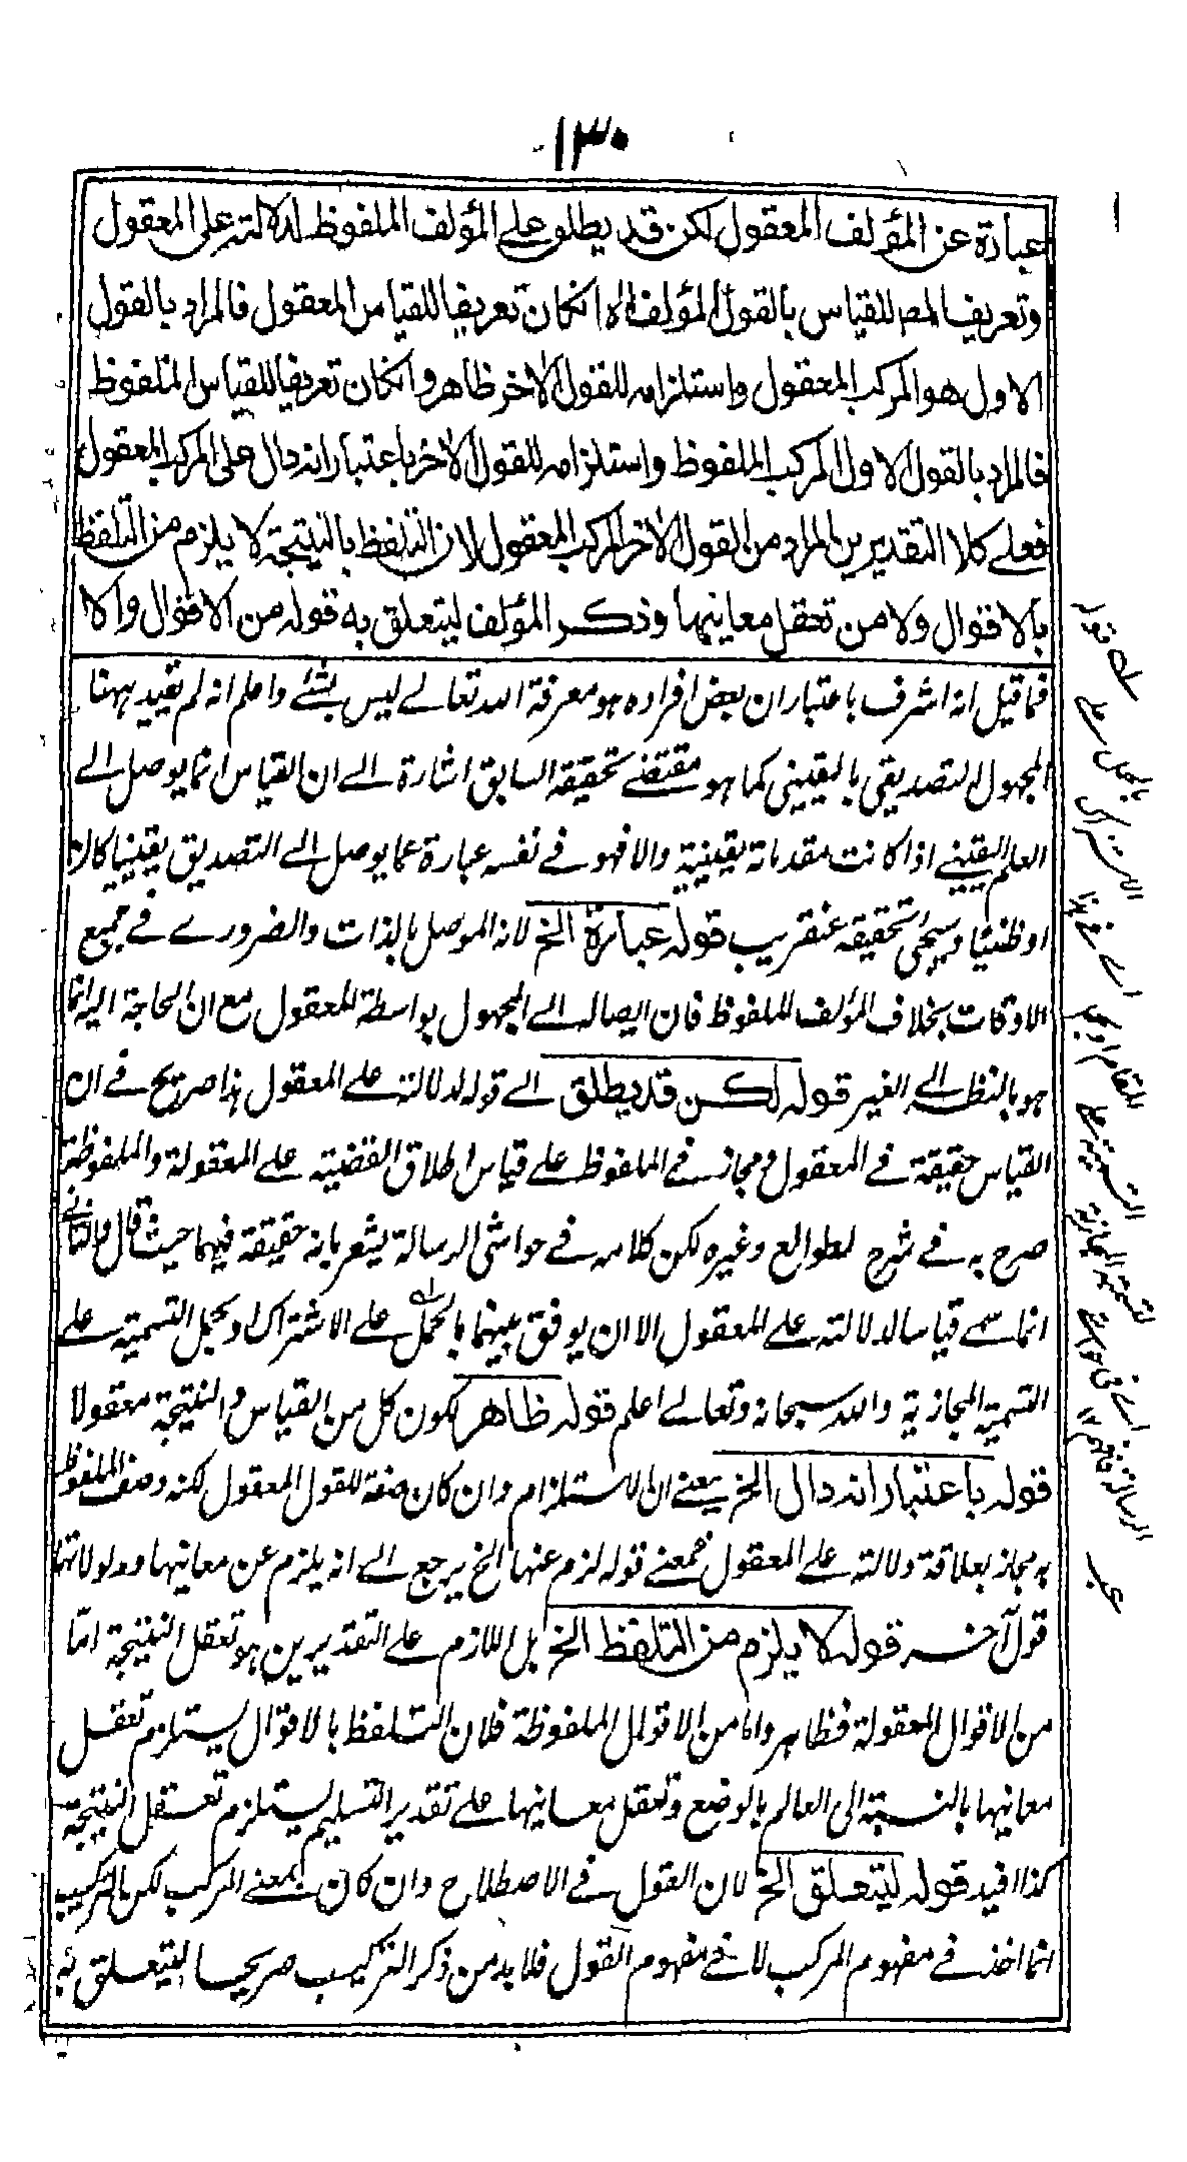 ١٣٠
عبارة عن المؤلف المعقول لكن قد يطلق على المؤلف الملفوظ لدلالته على المعقول
وتعريف المص للقياس بالقول المؤلف اه انكان تعريفا للقياس المعقول فالمراد بالقول
الاول هو المركب المعقول واستلزامه للقول الاخر ظاهر وانكان تعريفا للقياس الملفوظ
فالمراد بالقول الاول المركب الملفوظ واستلزامه للقول الاخر باعتبار انه دال على المركب المعقول
فعلے كلا التقديرين المراد من القول الاخر المركب المعقول لان التلفظ بالنتيجة لا يلزم من التلفظ
بالاقوال ولا من تعقل معانيها وذكر المؤلف ليتعلق به قوله من الاقوال والا
فما قيل انه اشرف باعتبار ان بعض افراده هو معرفة الله تعالے ليس بشئے واعلم انه لم يقيد ههنا
المجهول التصديقي باليقيني كما هو مقتضے تحقيقه السابق اشارة الے ان القياس انما يوصل الے
العلم اليقينے اذا كانت مقدماته يقينية والا فهو فے نفسه عبارة عما يوصل الے التصديق يقينيا كان
او ظنيا وسيجئ تحقيقه عنقريب قوله عبارة الخ لانه الموصل بالذات والضرورے فے جميع
الاوقات بخلاف المؤلف الملفوظ فان ايصاله الے المجهول بواسطة المعقول مع ان الحاجة اليه انما
هو بالنظر الے الغير قوله لكن قد يطلق الے قوله لدلالته علے المعقول هذا صريح فے ان
القياس حقيقة فے المعقول ومجاز فے الملفوظ علے قياس اطلاق القضية علے المعقولة والملفوظة
صرح به فے شرح المطوالع وغيره لكن كلامه فے حواشي الرسالة يشعر بانه حقيقة فيهما حيث قال والثانے
انما سمے قياسا لدلالته علے المعقول الا ان يوفق بينهما بالحمل علے الاشتراك او بحمل التسمية علے
التسمية المجازية والله سبحانه وتعالے اعلم قوله ظاهر لكون كل من القياس والنتيجة معقولا
قوله باعتبار انه دال الخ يعنے ان الاستلزام وان كان صفة للقول المعقول لكنه وصف الملفوظ
به مجاز بعلاقة دلالته علے المعقول فمعنے قوله لزم عنها الخ يرجع الے انه يلزم عن معانيها ومدلولاتها
قول آخر قوله لا يلزم من التلفظ الخ بل اللازم علے التقديرين هو تعقل النتيجة اما
من الاقوال المعقولة فظاهر واما من الاقوال الملفوظة فلان التلفظ بالاقوال يستلزم تعقل
معانيها بالنسبة الى العالم بالوضع وتعقل معانيها علے تقدير التسليم يستلزم تعقل النتيجة
كذا افيد قوله ليتعلق الخ لان القول فے الاصطلاح وان كان بمعنے المركب لكن التركيب
انما اخذ فے مفهوم المركب لا فے مفهوم القول فلا بد من ذكر التركيب صريحا ليتعلق به
سلہ قوله
بالحمل علے
الاشتراك
اے فے هذا
المقام او بحمل
التسمية علے
التسمية المجازية
اے فے حواشي
الرسالة فافهم ١٢